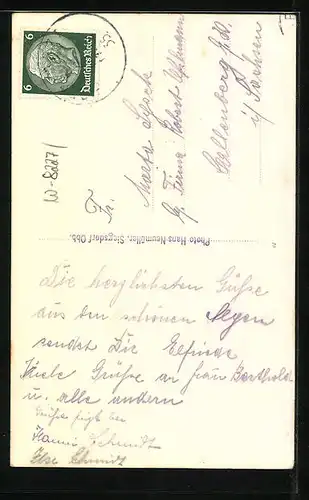 6
Deutsches Reich
6
W-8227/
Fr.
Marta
Fa.
Callenberg
i/ Sachsen
Photo Hans Neumüller, Siegsdorf Obb.
Die herzlichsten Grüße
aus den schönen
sendet Dir Elfriede
Viele Grüße an frau Berthold
u. alle andern
Grüße
Hanni Schmidt
Ilse Schmidt